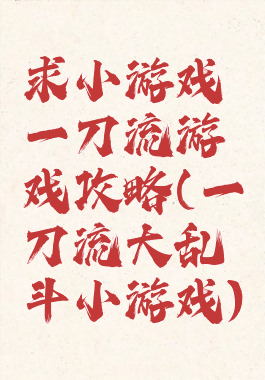 求小游戏
一刀流游
戏攻略(一
刀流大乱
斗小游戏)